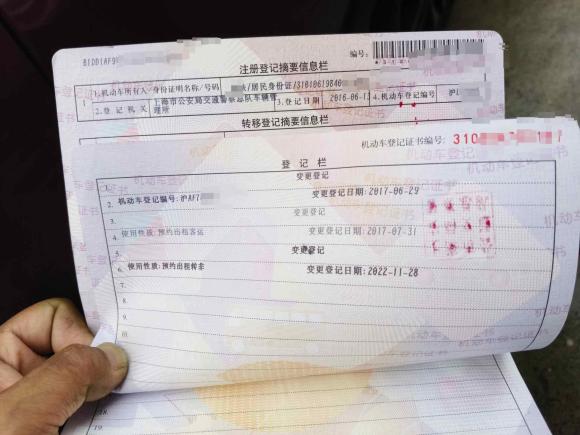 注册登记摘要信息栏
编号:
1.机动车所有人/身份证明名称/号码 /居民身份证/3101061984
2.登记机关 上海市公安局交通警察总队车辆管理所 3.登记日期 2016-06-13 4.机动车登记编号 沪
转移登记摘要信息栏
机动车登记证书编号: 310
登记栏
1. 变更登记
2. 机动车登记编号:沪AF7 变更登记日期:2017-06-29
3. 变更登记
4. 使用性质:预约出租客运 变更登记日期:2017-07-31
5. 变更登记
6. 使用性质:预约出租转非 变更登记日期:2022-11-28
7.
8.
9.
10.